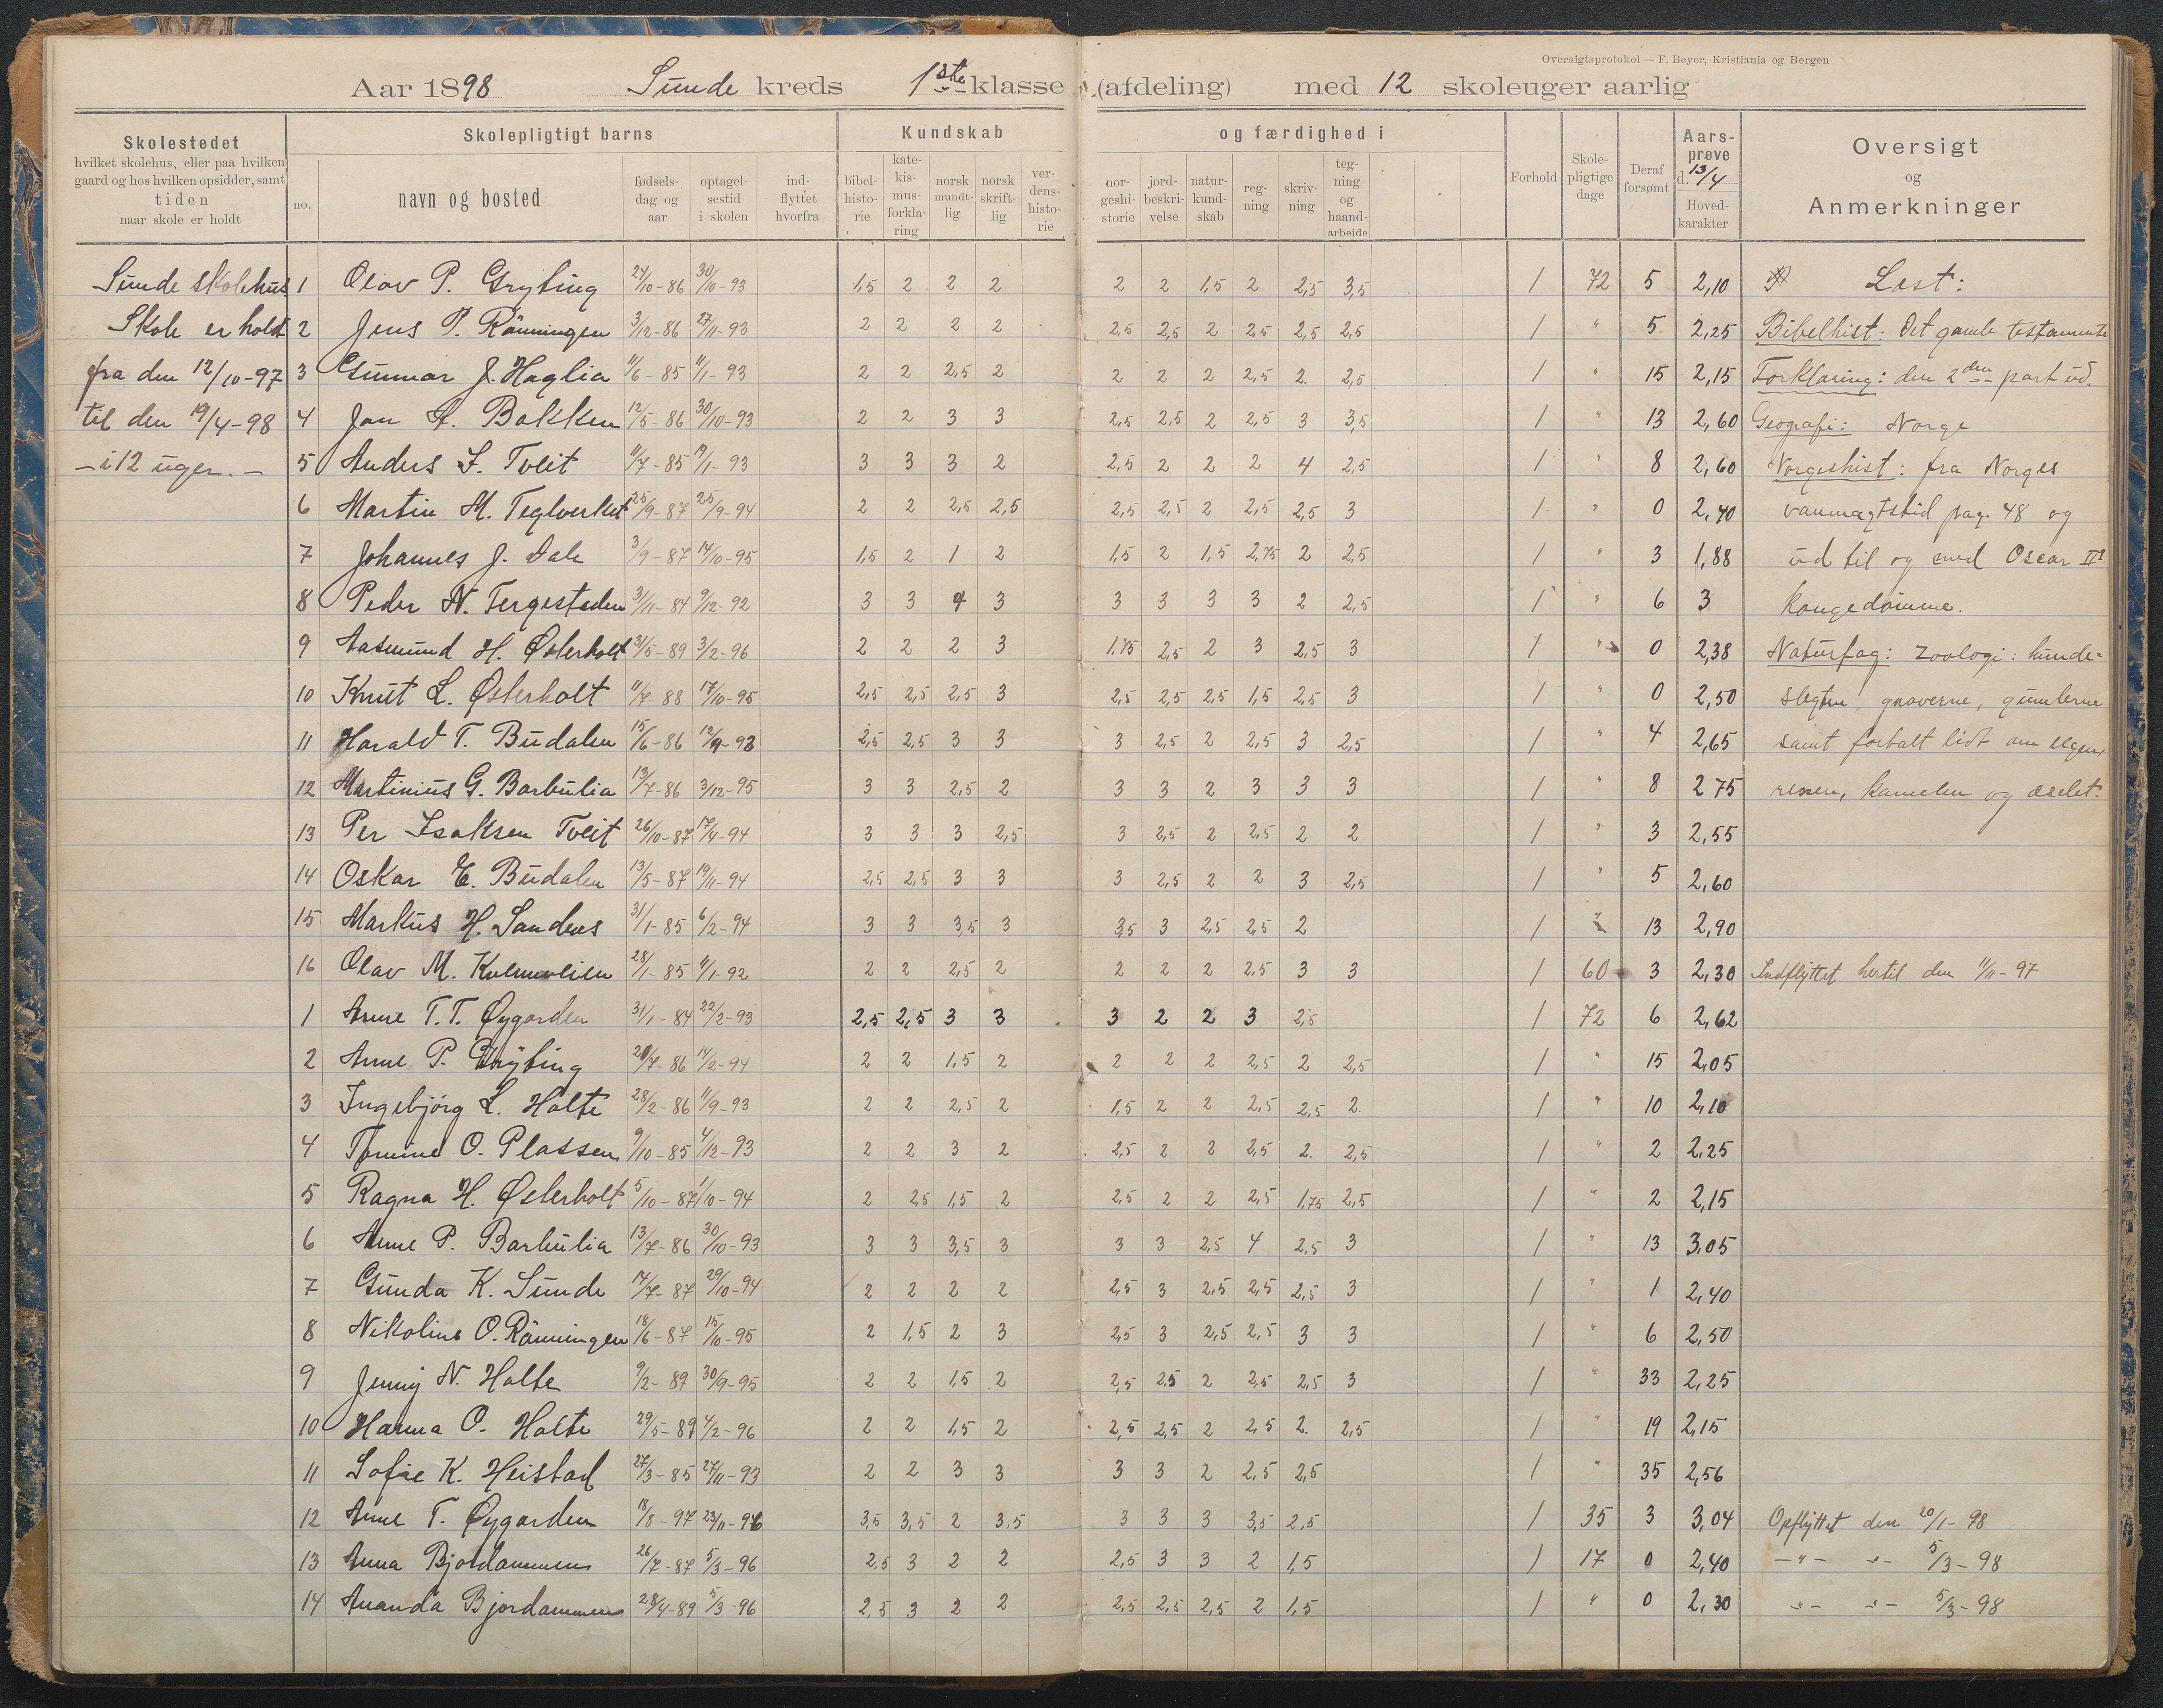 Oversigtsprotokol — F. Beyer, Kristiania og Bergen
Aar 1898 Sunde kreds 1ste klasse (afdeling) med 12 skoleuger aarlig
Skolestedet
hvilket skolehus, eller paa hvilken
gaard og hos hvilken opsidder, samt
tiden
naar skole er holdt
Skolepligtigt barns
no.
navn og bosted
fødsels-
dag og
aar
optagel-
sestid
i skolen
ind-
flyttet
hvorfra
Kundskab og færdighed i
bibel-
histo-
rie
kate-
kis-
mus-
forkla-
ring
norsk
mundt-
lig
norsk
skrift-
lig
ver-
dens-
histo-
rie
nor-
geshi-
storie
jord-
beskri-
velse
natur-
kund-
skab
reg-
ning
skriv-
ning
teg-
ning
og
haand-
arbeide
Forhold
Skole-
pligtige
dage
Deraf
forsømt
Aars-
prøve
d. 13/4
Hoved-
karakter
Oversigt
og
Anmerkninger
Sunde skolehus 1 Olav P. Gryting 24/10-86 30/10-93 1,5 2 2 2 2 2 1,5 2 2,5 3,5 1 72 5 2,10 Læst:
Skole er holdt 2 Jens P. Rönningen 3/12-86 27/11-93 2 2 2 2 2,5 2,5 2 2,5 2,5 2,5 1 " 5 2,25 Bibelhist: Det gamle testamente
fra den 12/10-97 3 Gunnar J. Haglia 11/6-85 11/1-93 2 2 2,5 2 2 2 2 2,5 2 2,5 1 " 15 2,15 Forklaring: den 2den part ud.
til den 19/4-98 4 Jan A. Bakken 12/5-86 30/10-93 2 2 3 3 2,5 2,5 2 2,5 3 3,5 1 " 13 2,60 Geografi: Norge
- i 12 uger. - 5 Anders L. Tveit 11/7-85 19/1-93 3 3 3 2 2,5 2 2 2 4 2,5 1 " 8 2,60 Norgeshist: fra Norges
6 Martin M. Teglverket 25/9-87 25/9-94 2 2 2,5 2,5 2,5 2,5 2 2,5 2,5 3 1 " 0 2,40 vanmagtstid pag. 48 og
7 Johannes J. Dale 3/9-87 14/10-95 1,5 2 1 2 1,5 2 1,5 2,75 2 2,5 1 " 3 1,88 ud til og med Oscar IIs
8 Peder N. Tergesteden 31/11-84 9/12-92 3 3 4 3 3 3 3 3 2 2,5 1 " 6 3 kongedömme.
9 Aasmund H. Østerholt 31/5-89 3/2-96 2 2 2 3 1,75 2,5 2 3 2,5 3 1 " 0 2,38 Naturfag: Zoologi: hunde=
10 Knut L. Østerholt 11/7-88 17/10-95 2,5 2,5 2,5 3 2,5 2,5 2,5 1,5 2,5 3 1 " 0 2,50 slegten, gnaverne, gumlerne
11 Harald T. Budalen 15/6-86 12/9-93 2,5 2,5 3 3 3 2,5 2 2,5 3 2,5 1 " 4 2,65 samt fortalt lidt om elgen,
12 Martinius G. Barbulia 13/7-86 3/12-95 3 3 2,5 2 3 3 2 3 3 3 1 " 8 2 75 renen, kamelen og æselet.
13 Per Isaksen Tveit 26/10-87 17/4-94 3 3 3 2,5 3 2,5 2 2,5 2 2 1 " 3 2,55
14 Oskar E. Budalen 13/5-87 19/11-94 2,5 2,5 3 3 3 2,5 2 2 3 2,5 1 " 5 2,60
15 Markus H. Sandnes 31/1-85 6/2-94 3 3 3,5 3 3,5 3 2,5 2,5 2 1 " 13 2,90
16 Olav M. 28/1-85 11/1-92 2 2 2,5 2 2 2 2 2,5 3 3 1 60 3 2,30 Indflyttet hertil den 11/11-97
1 Anne T.T. Øygarden 31/1-84 22/2-93 2,5 2,5 3 3 3 2 2 3 2,5 1 72 6 2,62
2 Anne P. Gryting 20/7-86 14/2-94 2 2 1,5 2 2 2 2 2,5 2 2,5 1 " 15 2,05
3 Ingebjörg L. Holte 28/2-86 11/9-93 2 2 2,5 2 1,5 2 2 2,5 2,5 2. 1 " 10 2,10
4 Tomine O. Plassen 9/10-85 4/12-93 2 2 3 2 2,5 2 2 2,5 2. 2,5 1 " 2 2,25
5 Ragna H. Østerholt 5/10-87 1/10-94 2 2,5 1,5 2 2,5 2 2 2,5 1,75 2,5 1 " 2 2,15
6 Anne P. Barbulia 13/7-86 30/10-93 3 3 3,5 3 3 3 2,5 4 2,5 3 1 " 13 3,05
7 Gunda K. Sunde 14/7-87 29/10-94 2 2 2 2 2,5 3 2,5 2,5 2,5 3 1 " 1 2,40
8 Nikoline O. Rönningen 18/6-87 15/10-95 2 1,5 2 3 2,5 3 2,5 2,5 3 3 1 " 6 2,50
9 Jenny N. Holte 9/2-89 30/9-95 2 2 1,5 2 2,5 2,5 2 2,5 2,5 3 1 " 33 2,25
10 Hanna O. Holte 29/5-89 4/2-96 2 2 1,5 2 2,5 2,5 2 2,5 2. 2,5 1 " 19 2,15
11 Sofie K. Heistad 27/3-85 27/11-93 2 2 3 3 3 3 2 2,5 2,5 1 " 35 2,56
12 Anne T. Øygarden 18/8-97 23/11-96 3,5 3,5 2 3,5 3 3 3 3,5 2,5 1 35 3 3,04 Opflyttet den 20/1-98
13 Anna Bjordammen 26/7-87 5/3-96 2,5 3 2 2 2,5 3 3 2 1,5 1 17 0 2,40 -"- -"- 5/3-98
14 Ananda Bjordammen 28/4-89 5/3-96 2,5 3 2 2 2,5 2,5 2,5 2 1,5 1 " 0 2,30 -"- -"- 5/3-98